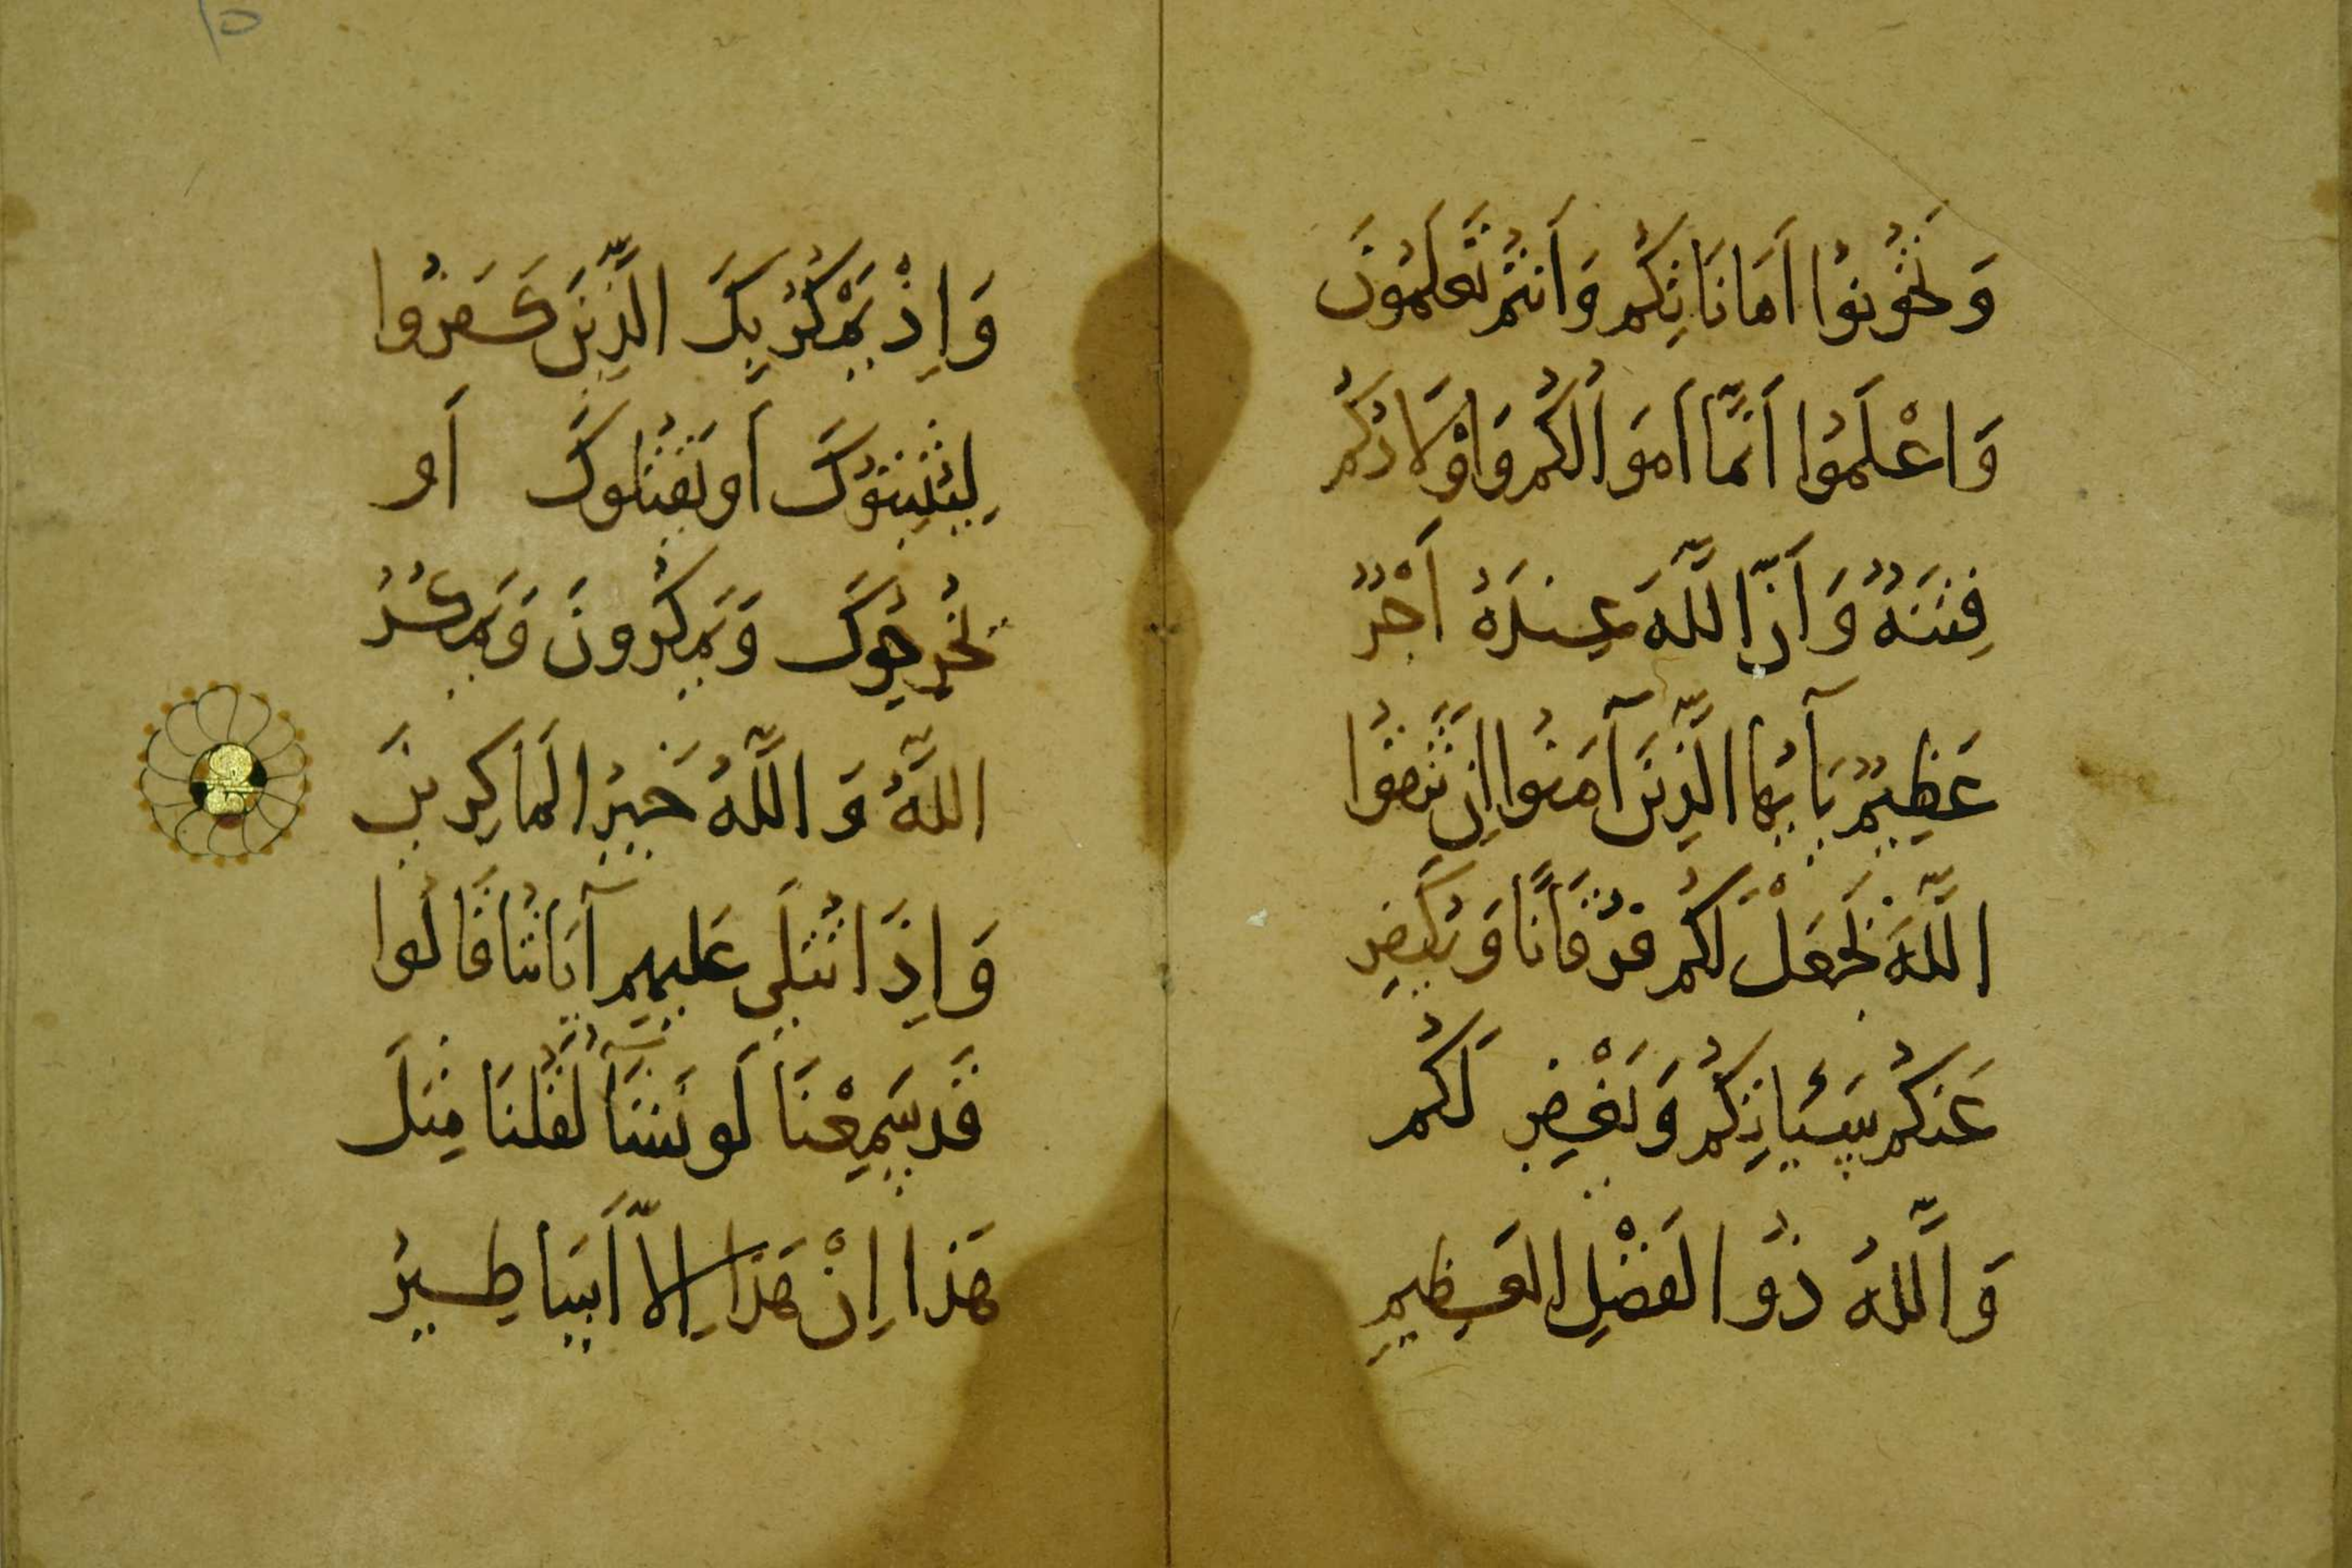 وَتَخُونُوا أَمَانَاتِكُم وَأَنتُم تَعلَمُونَ
وَاعْلَمُوا أَنَّمَا أَموَالُكُم وَأوْلَادُكُم
فِتنَةٌ وَأَنَّ اللَّهَ عِندَهُ أَجْرٌ
عَظِيمٌ يَآ أَيُّهَا الَّذِينَ آمَنُوا إِن تَتَّقُوا
اللَّهَ يَجعَلْ لَكُم فُرقَانًا وَيُكَفِّر
عَنكُم سَيِّئَاتِكُم وَيَغْفِر لَكُم
وَاللَّهُ ذُو الفَضْلِ العَظِيمِ
وَإِذْ يَمْكُرُ بِكَ الَّذِينَ كَفَرُوا
لِيُثْبِتُوكَ أَو يَقتُلُوكَ أَو
يُخرِجُوكَ وَيَمكُرُونَ وَيَمكُرُ
اللَّهُ وَاللَّهُ خَيرُ المَاكِرِينَ
وَإِذَا تُتلَى عَلَيهِم آيَاتُنَا قَالُوا
قَد سَمِعْنَا لَو نَشَآءُ لَقُلنَا مِثلَ
هَذَا إِنْ هَذَا إِلَّا أَسَاطِيرُ
١٥